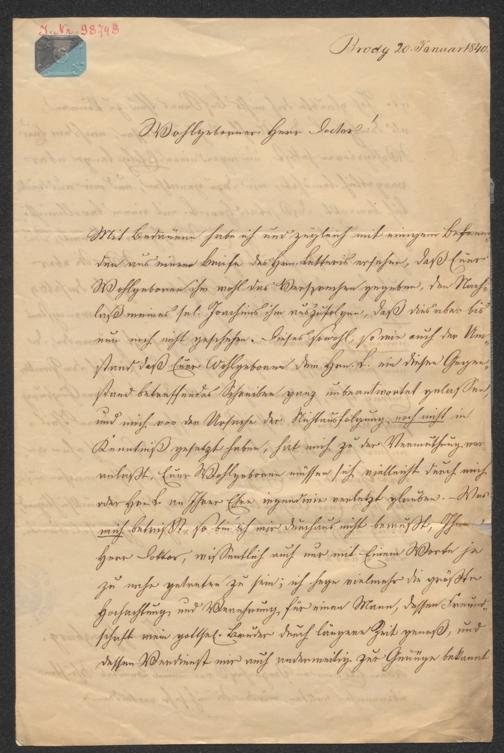 J. N. 98748
Brody 20. Januar 1840.
Wohlgeborner Herr Doctor!
Mit Bedauern habe ich und zugleich mit einigem Befrem-
den aus einem Briefe des Hrn. Letteris ersehen, daß Euer
Wohlgeboren ihm wohl das Versprechen gegeben, den Nach-
laß meines sel. Joachims ihm auszufolgen, daß dies aber bis
nun noch nicht geschehen. Dieses sowohl, so wie auch der Um-
stand daß Euer Wohlgeboren dem Hrn. L. ein diesen Gegen-
stand betreffendes Schreiben ganz unbeantwortet gelassen,
und mich von der Ursache der Nichtausfolgung noch nicht in
Kenntniß gesetzt haben, hat mich zu der Vermuthung ver-
anlaßt, Euer Wohlgeboren müssen sich vielleicht durch mich
oder Hrn L. an Ihrer Ehre irgendwie verletzt glauben. – Was
mich betrifft, so bin ich mir durchaus nicht bewußt, Ihnen
Herr Doktor, wissentlich auch nur mit Einem Worte je
zu nahe getreten zu sein; ich hege vielmehr die größte
Hochachtung und Verehrung für einen Mann, dessen Freund-
schaft mein gottsel. Bruder durch längere Zeit genoß, und
dessen Verdienst mir auch anderweitig zur Genüge bekannt